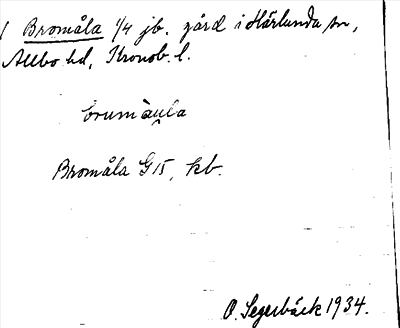 Bromåla 1/4 jb. gård i Härlunda sn,
Allbo hd, Kronob. l.
brumàula
Bromåla G15, kb.
O. Segerbäck 1934.